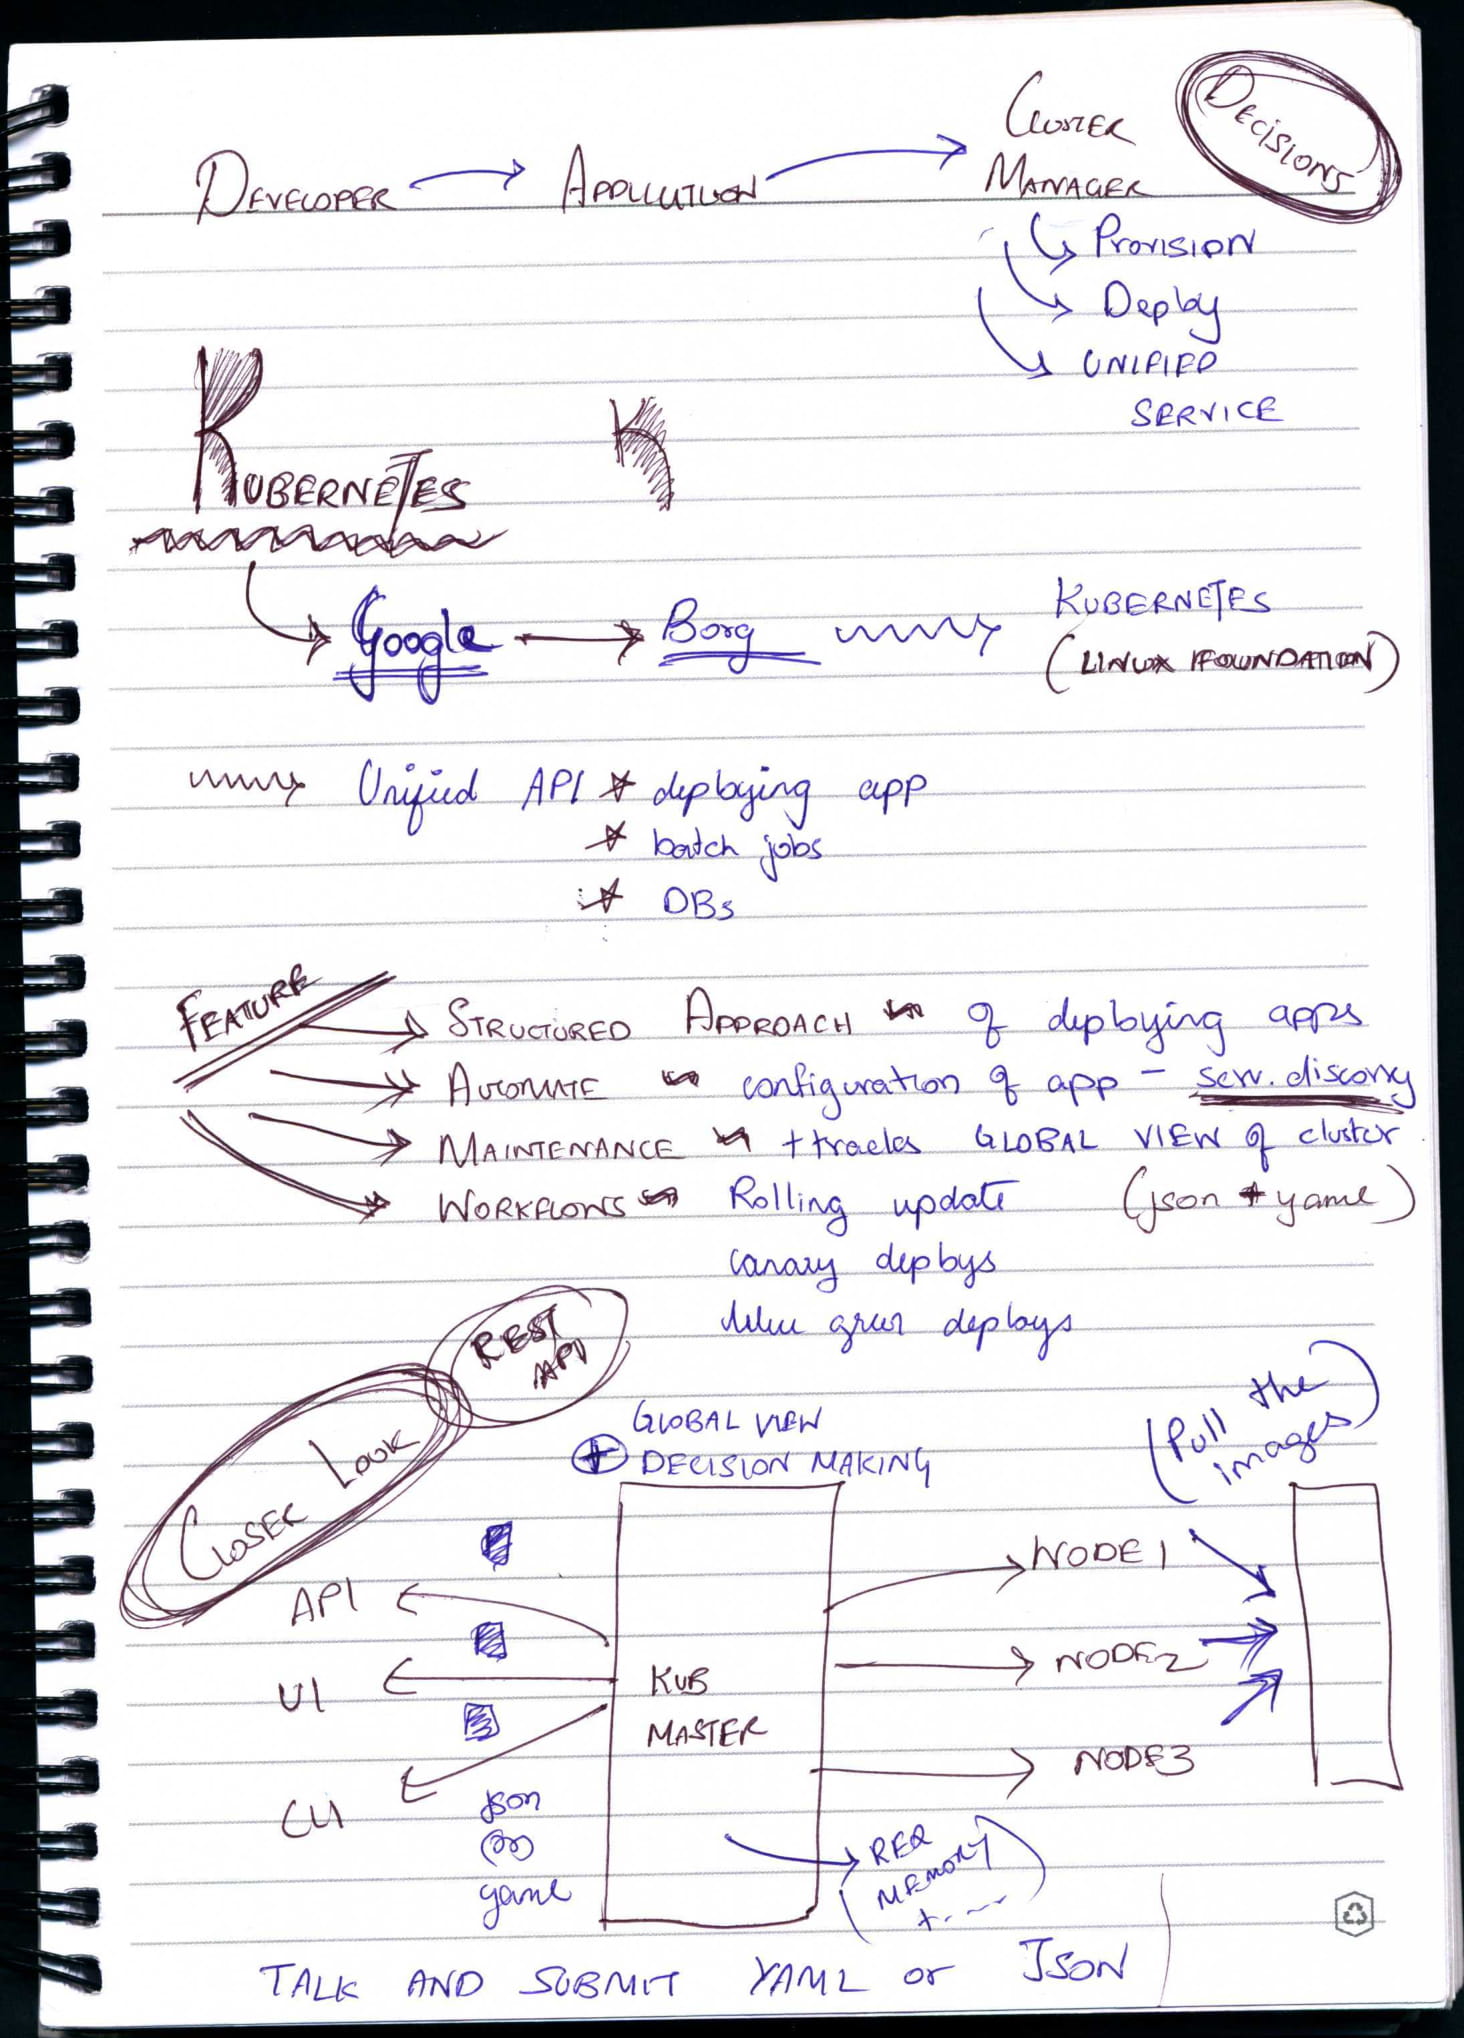 DECISIONS
DEVELOPER → APPLICATION → CLUSTER MANAGER
Provision
Deploy
UNIFIED
SERVICE
K
KUBERNETES
Google → Borg
KUBERNETES
(LINUX FOUNDATION)
Unified API * deploying app
* batch jobs
* DBs
FEATURE
→ STRUCTURED APPROACH of deploying apps
→ AUTOMATE configuration of app - serv. discovry
→ MAINTENANCE + tracks GLOBAL VIEW of cluster
→ WORKFLOWS Rolling update (json + yaml)
canary deploys
blue green deploys
REST
API
CLOSER LOOK
GLOBAL VIEW
+ DECISION MAKING
(Pull the
images)
API
UI
CLI
KUB
MASTER
NODE 1
NODE 2
NODE 3
json
(or)
yaml
REQ
(MEMORY)
+....
TALK AND SUBMIT YAML or JSON